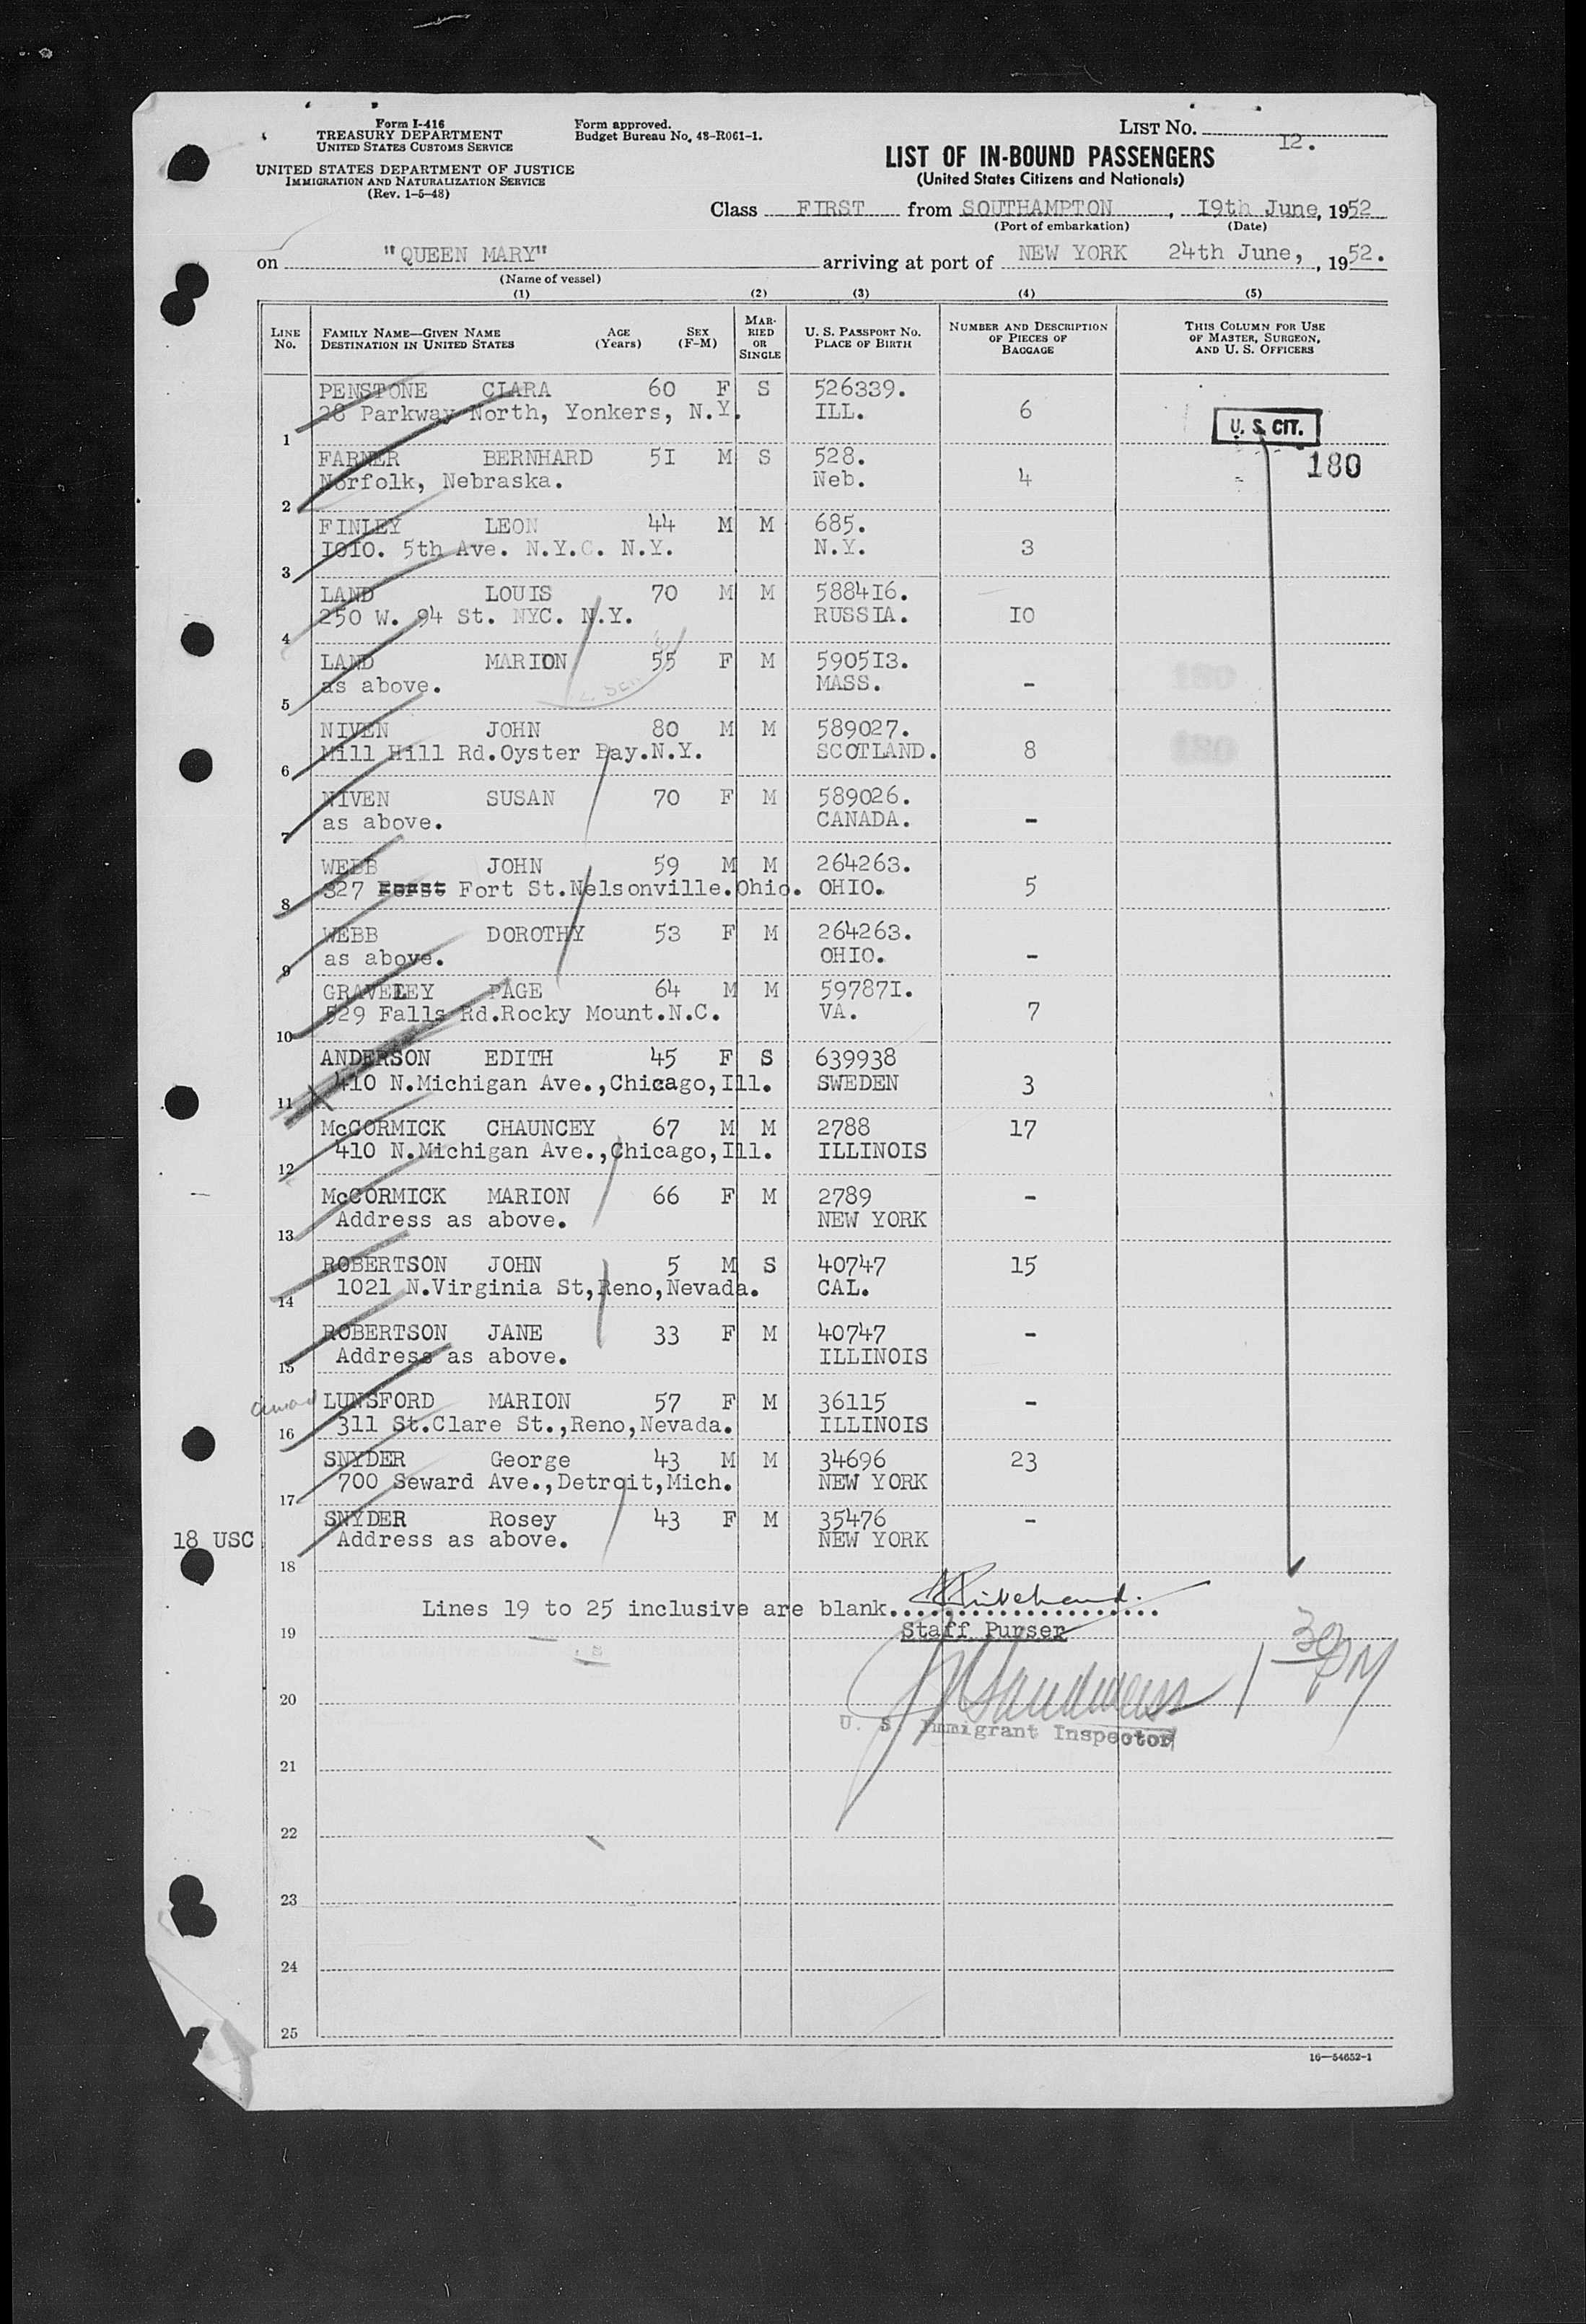 Form I-416
TREASURY DEPARTMENT
UNITED STATES CUSTOMS SERVICE
UNITED STATES DEPARTMENT OF JUSTICE
IMMIGRATION AND NATURALIZATION SERVICE
(Rev. 1-5-48)
Form approved.
Budget Bureau No. 48-R061-1.
LIST NO. 12.
LIST OF IN-BOUND PASSENGERS
(United States Citizens and Nationals)
Class FIRST from SOUTHAMPTON, 19th June, 1952
(Port of embarkation) (Date)
on "QUEEN MARY" arriving at port of NEW YORK 24th June, , 1952.
(Name of vessel)
(1) (2) (3) (4) (5)
LINE NO. FAMILY NAME—GIVEN NAME DESTINATION IN UNITED STATES AGE (Years) SEX (F-M) MARRIED OR SINGLE U. S. PASSPORT NO. PLACE OF BIRTH NUMBER AND DESCRIPTION OF PIECES OF BAGGAGE THIS COLUMN FOR USE OF MASTER, SURGEON, AND U. S. OFFICERS
PENSTONE CLARA 60 F S 526339.
28 Parkway North, Yonkers, N.Y. ILL. 6
1 U. S. CIT.
FARNER BERNHARD 51 M S 528. 180
Norfolk, Nebraska. Neb. 4
2
FINLEY LEON 44 M M 685.
1010. 5th Ave. N.Y.C. N.Y. N.Y. 3
3
LAND LOUIS 70 M M 588416.
250 W. 94 St. NYC. N.Y. RUSSIA. 10
4
LAND MARION 55 F M 590513.
as above. MASS. - 180
5
NIVEN JOHN 80 M M 589027.
Mill Hill Rd.Oyster Bay.N.Y. SCOTLAND. 8 180
6
NIVEN SUSAN 70 F M 589026.
as above. CANADA. -
7
WEBB JOHN 59 M M 264263.
327 Fort St.Nelsonville.Ohio. OHIO. 5
8
WEBB DOROTHY 53 F M 264263.
as above. OHIO. -
9
GRAVELEY PAGE 64 M M 597871.
529 Falls Rd.Rocky Mount.N.C. VA. 7
10
ANDERSON EDITH 45 F S 639938
410 N.Michigan Ave.,Chicago,Ill. SWEDEN 3
11
McCORMICK CHAUNCEY 67 M M 2788 17
410 N.Michigan Ave.,Chicago,Ill. ILLINOIS
12
McCORMICK MARION 66 F M 2789 -
Address as above. NEW YORK
13
ROBERTSON JOHN 5 M S 40747 15
1021 N.Virginia St,Reno,Nevada. CAL.
14
ROBERTSON JANE 33 F M 40747 -
Address as above. ILLINOIS
15
LUNSFORD MARION 57 F M 36115 -
311 St.Clare St.,Reno,Nevada. ILLINOIS
16
SNYDER George 43 M M 34696 23
700 Seward Ave.,Detroit,Mich. NEW YORK
17
SNYDER Rosey 43 F M 35476 -
18 USC Address as above. NEW YORK
18
Lines 19 to 25 inclusive are blank.
19 Staff Purser
1 30 PM
20
U. S. Immigrant Inspector
21
22
23
24
25
16—54652-1